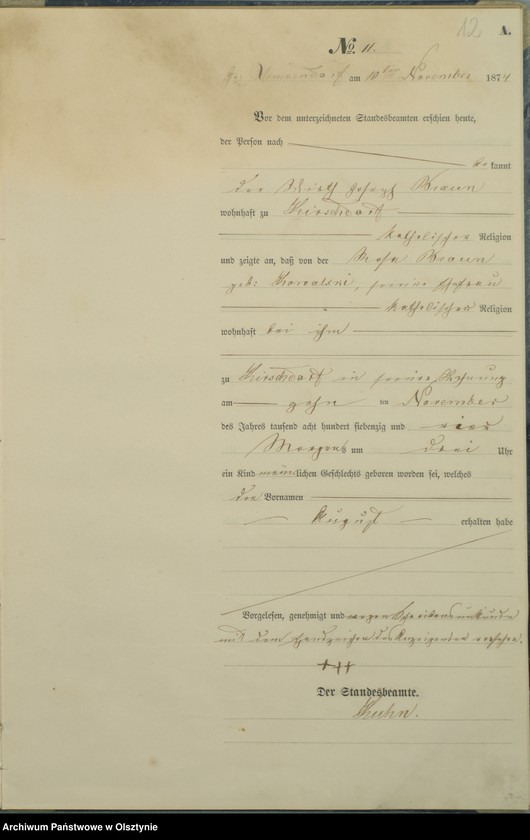 12
A.
No. 11.
am 10ten November 1874
Vor dem unterzeichneten Standesbeamten erschien heute,
der Person nach
bekannt
der Wirth Joseph Braun
wohnhaft zu Hirschdorf
katholischer Religion
und zeigte an, daß von der Rosa Braun
geb: Kowalski, seine Ehefrau
katholischer Religion
wohnhaft bei ihm
zu Hirschdorf in seiner Wohnung
am zehn ten November
des Jahres tausend acht hundert siebenzig und vier
Morgens um drei Uhr
ein Kind männlichen Geschlechts geboren worden sei, welches
den Vornamen
August
erhalten habe
Vorgelesen, genehmigt und wegen Schreibensunkunde
mit dem Handzeichen des Anzeigenden versehen.
+++
Der Standesbeamte.
Kuhn.
Archiwum Państwowe w Olsztynie